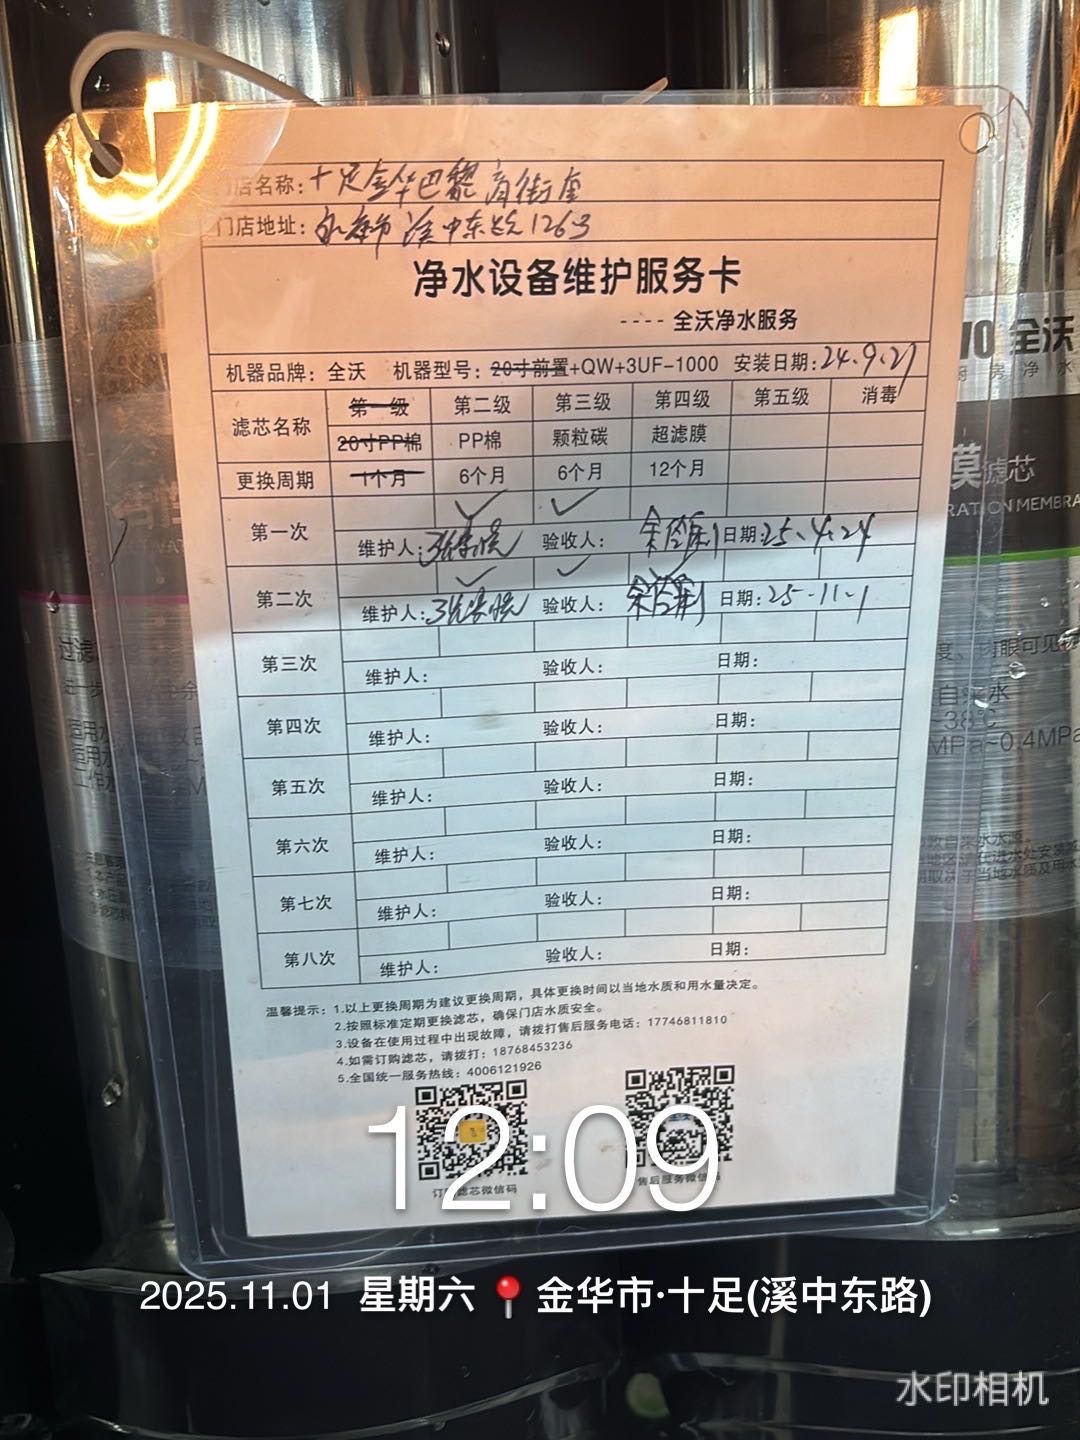 门店名称：十足金华巴黎商街店
门店地址：永康市溪中东路126号
净水设备维护服务卡
---- 全沃净水服务
机器品牌：全沃 机器型号：20寸前置+QW+3UF-1000 安装日期：24.9.27
滤芯名称 第一级 第二级 第三级 第四级 第五级 消毒
20寸PP棉 PP棉 颗粒碳 超滤膜
更换周期 1个月 6个月 6个月 12个月
第一次 ✓ ✓
维护人： 验收人： 日期：25.4.24
第二次 ✓ ✓ ✓
维护人： 验收人： 日期：25.11.1
第三次 维护人： 验收人： 日期：
第四次 维护人： 验收人： 日期：
第五次 维护人： 验收人： 日期：
第六次 维护人： 验收人： 日期：
第七次 维护人： 验收人： 日期：
第八次 维护人： 验收人： 日期：
温馨提示：1.以上更换周期为建议更换周期，具体更换时间以当地水质和用水量决定。
2.按照标准定期更换滤芯，确保门店水质安全。
3.设备在使用过程中出现故障，请拨打售后服务电话：17746811810
4.如需订购滤芯，请拨打：18768453236
5.全国统一服务热线：4006121926
滤芯微信码 售后服务微信码
12:09
2025.11.01 星期六 金华市·十足(溪中东路)
水印相机
全沃
膜滤芯
自来水
MPa~0.4MPa